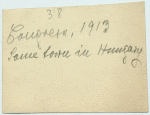 38
Congress, 1913
Some town in Hungary